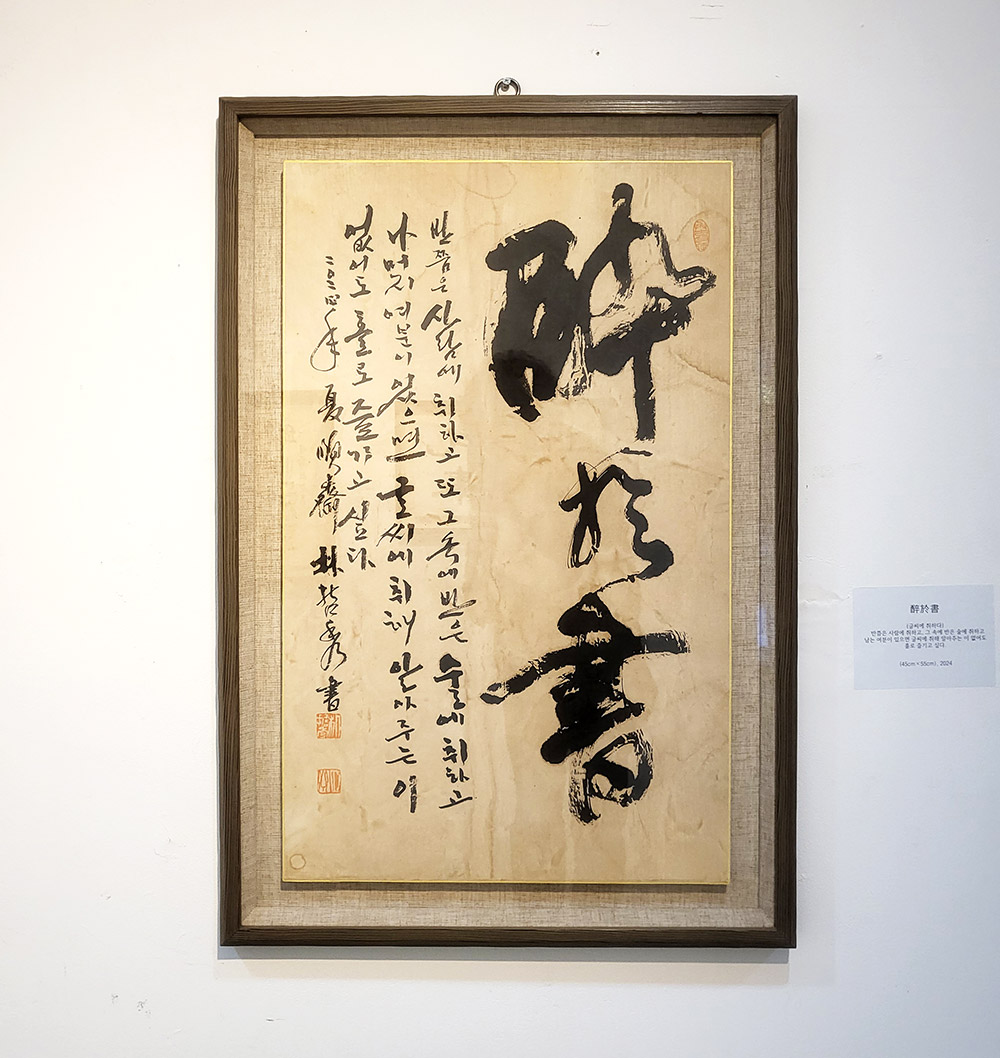 醉於書
반쯤은 사람에 취하고 또 그 속에 반은 술에 취하고
나머지 여분이 있으면 글씨에 취해 알아주는 이
없어도 홀로 즐기고 싶다
二〇二四年 夏 順齋 林哲秀 書
醉於書
(글씨에 취하다)
반쯤은 사람에 취하고, 그 속에 반은 술에 취하고
남는 여분이 있으면 글씨에 취해 알아주는 이 없어도
홀로 즐기고 싶다.
(45cm×55cm), 2024